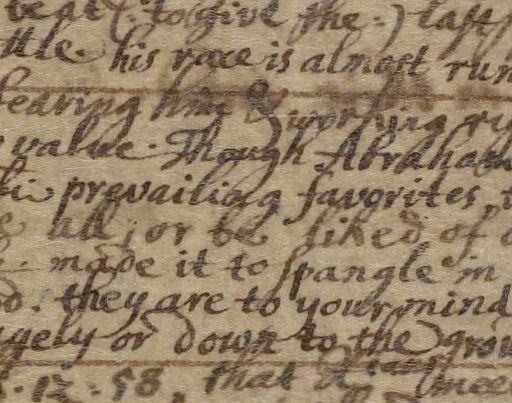 to give the :) last
his race is almost run
bearing him & working
value. Though Abraham
prevailing favorites
all; or be liked of
made it to spangle in
they are to your mind
or down to the
12 . 58. that